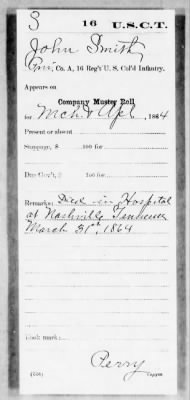 S 16 U.S.C.T.
John Smith
Pvt., Co. A, 16 Reg't U. S. Col'd Infantry.
Appears on
Company Muster Roll
for Mch & Apl, 1864
Present or absent
Stoppage, $ 100 for
Due Gov't, $ 100 for
Remarks: Died in Hospital
at Nashville Tennessee
March 31st, 1864
Book mark:
Perry
(358) Copyist.